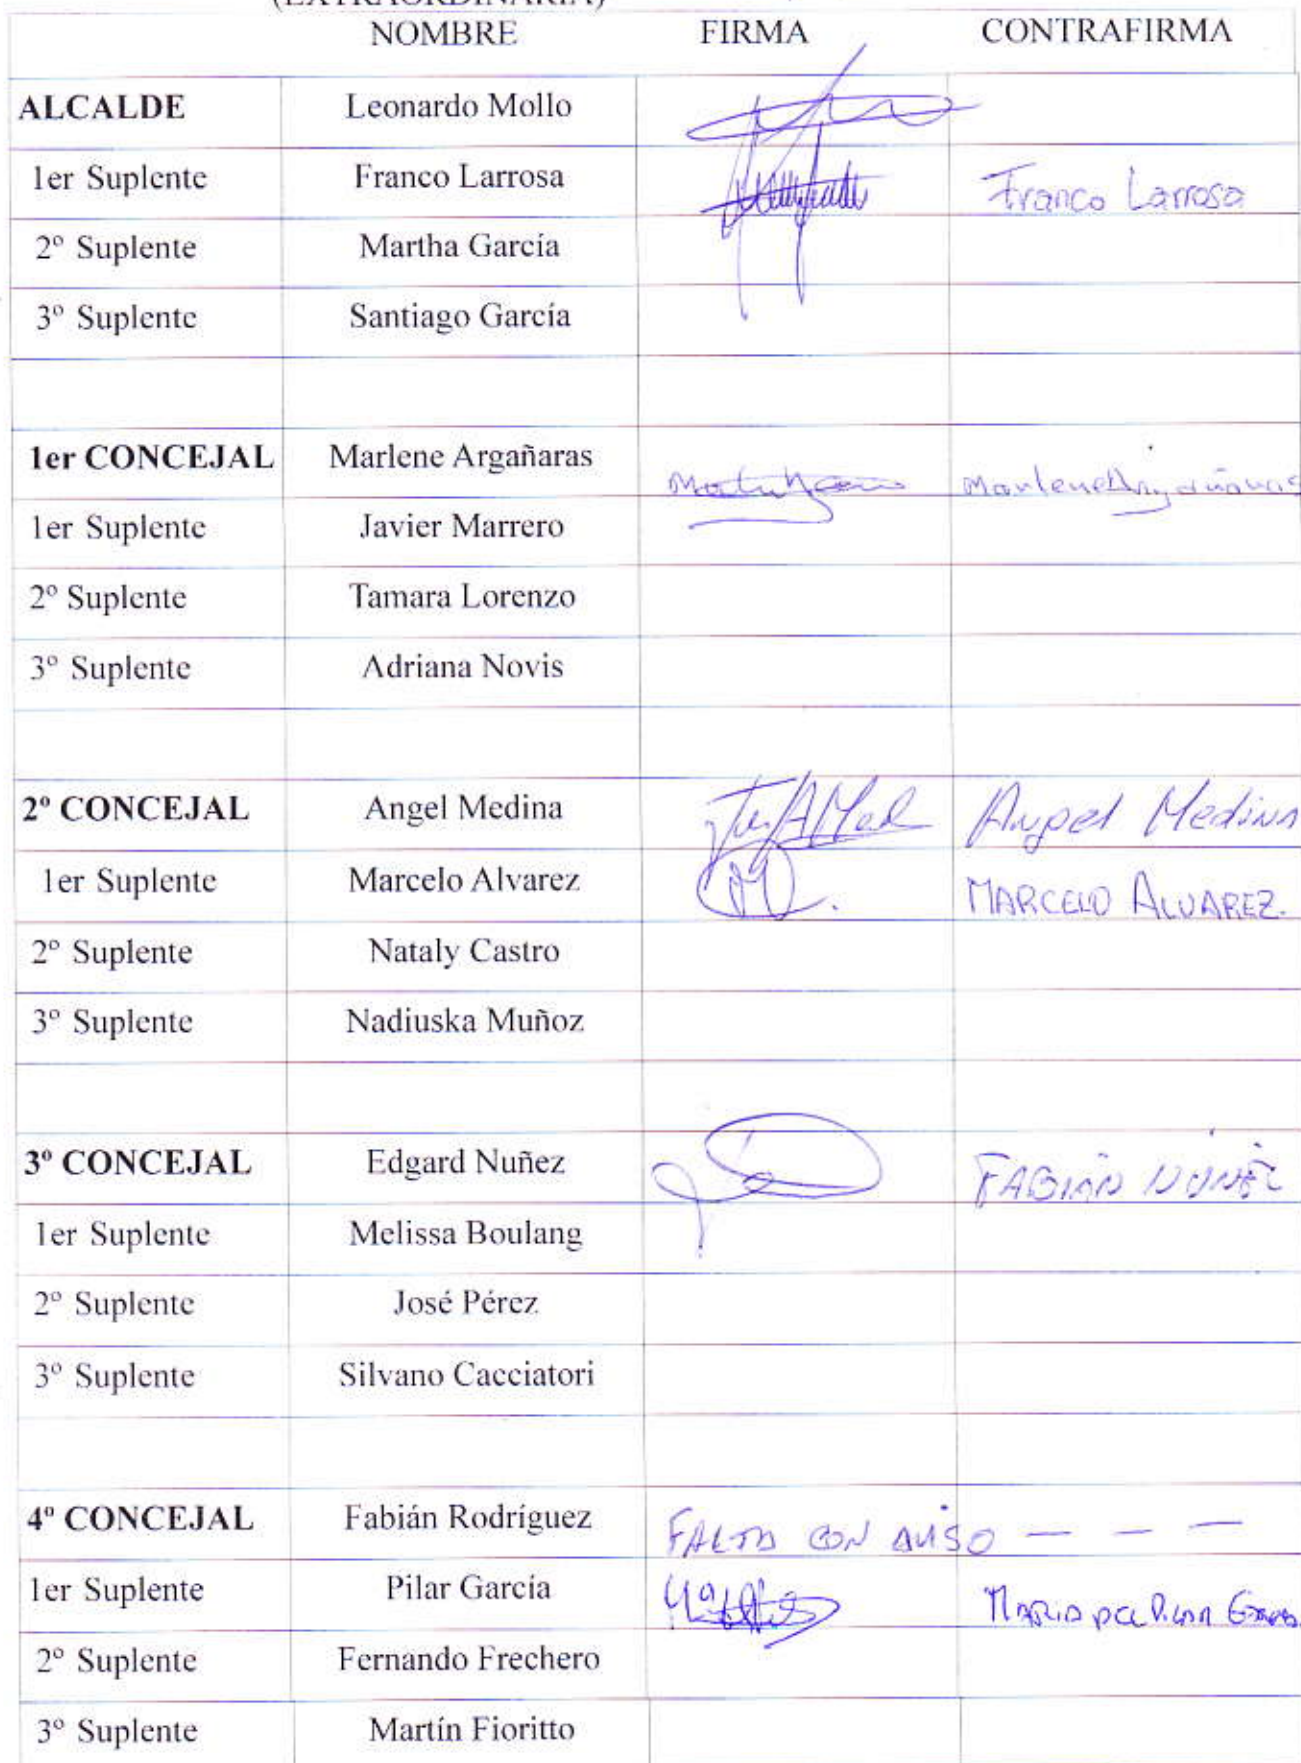 (EXTRAORDINARIA)
NOMBRE FIRMA CONTRAFIRMA
ALCALDE Leonardo Mollo
1er Suplente Franco Larrosa Franco Larrosa
2º Suplente Martha García
3º Suplente Santiago García
1er CONCEJAL Marlene Argañaras Marlene Argañaras
1er Suplente Javier Marrero
2º Suplente Tamara Lorenzo
3º Suplente Adriana Novis
2º CONCEJAL Angel Medina Angel Medina
1er Suplente Marcelo Alvarez MARCELO ALVAREZ.
2º Suplente Nataly Castro
3º Suplente Nadiuska Muñoz
3º CONCEJAL Edgard Nuñez FABIÁN NUÑEZ
1er Suplente Melissa Boulang
2º Suplente José Pérez
3º Suplente Silvano Cacciatori
4º CONCEJAL Fabián Rodríguez FALTA CON AVISO — — —
1er Suplente Pilar García MARIA DEL PILAR
2º Suplente Fernando Frechero
3º Suplente Martín Fioritto